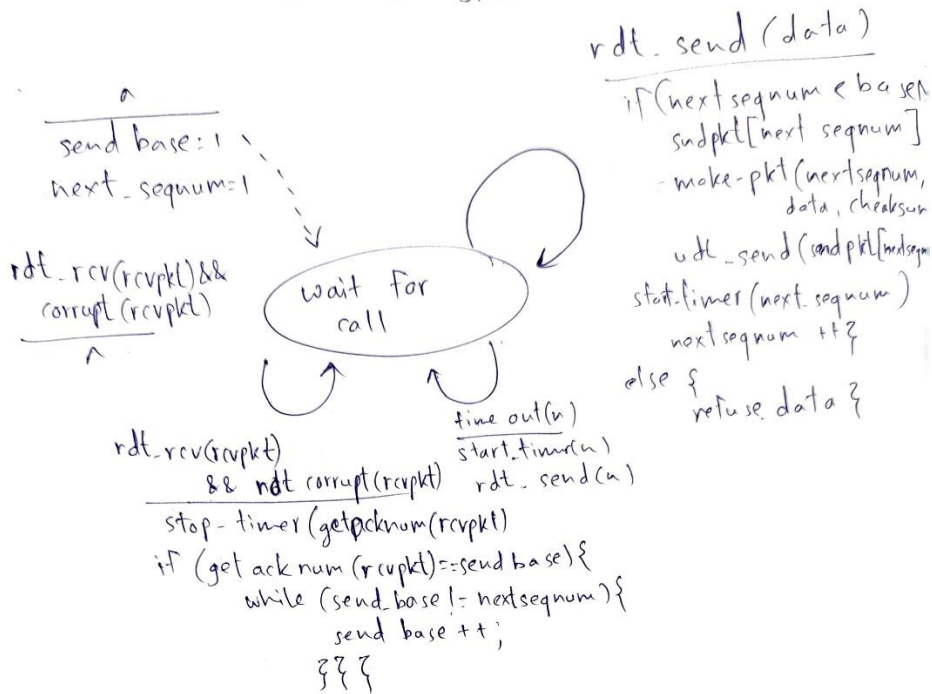 Λ
send base: 1
next_seqnum=1
rdt_rcv(rcvpkt)&&
corrupt(rcvpkt)
Λ
wait for
call
rdt_send(data)
if(nextseqnum < base
sndpkt[next seqnum]
-make-pkt(nextseqnum,
data, cheaksum
udt_send(sndpkt[nextseqn
start-timer(next_seqnum)
nextseqnum ++}
else {
refuse data }
time out(n)
start_timer(n)
rdt_send(n)
rdt_rcv(rcvpkt)
&& not corrupt(rcvpkt)
stop-timer(getacknum(rcvpkt)
if (get ack num (rcvpkt)==send base){
while (send_base != nextseqnum){
send base ++;
}}}